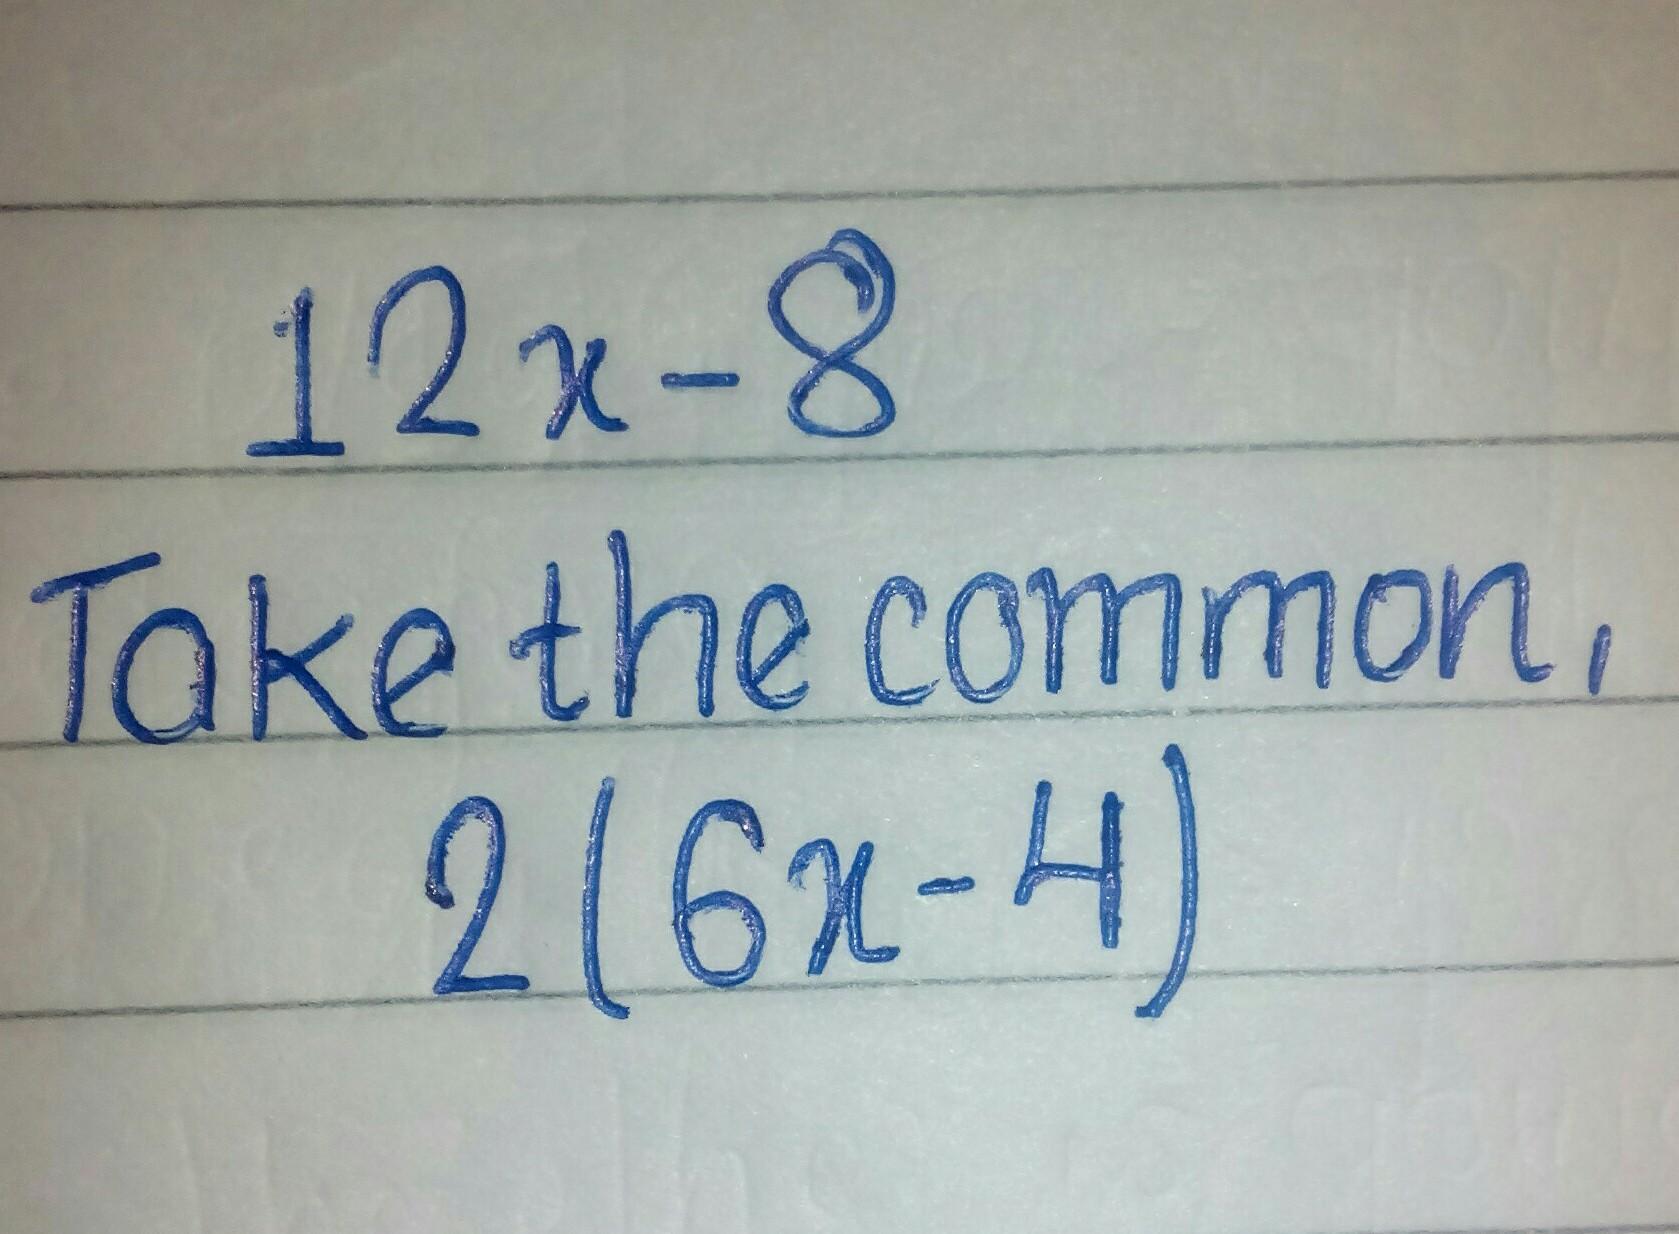 12x-8
Take the common,
2(6x-4)